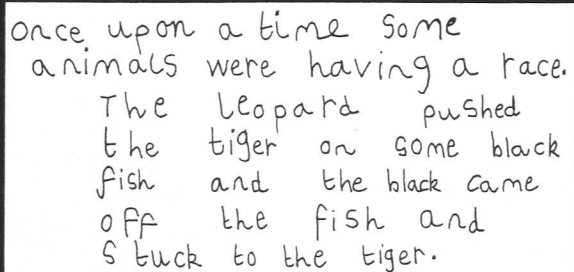 once upon a time some
animals were having a race.
The leopard pushed
the tiger on some black
fish and the black came
off the fish and
stuck to the tiger.